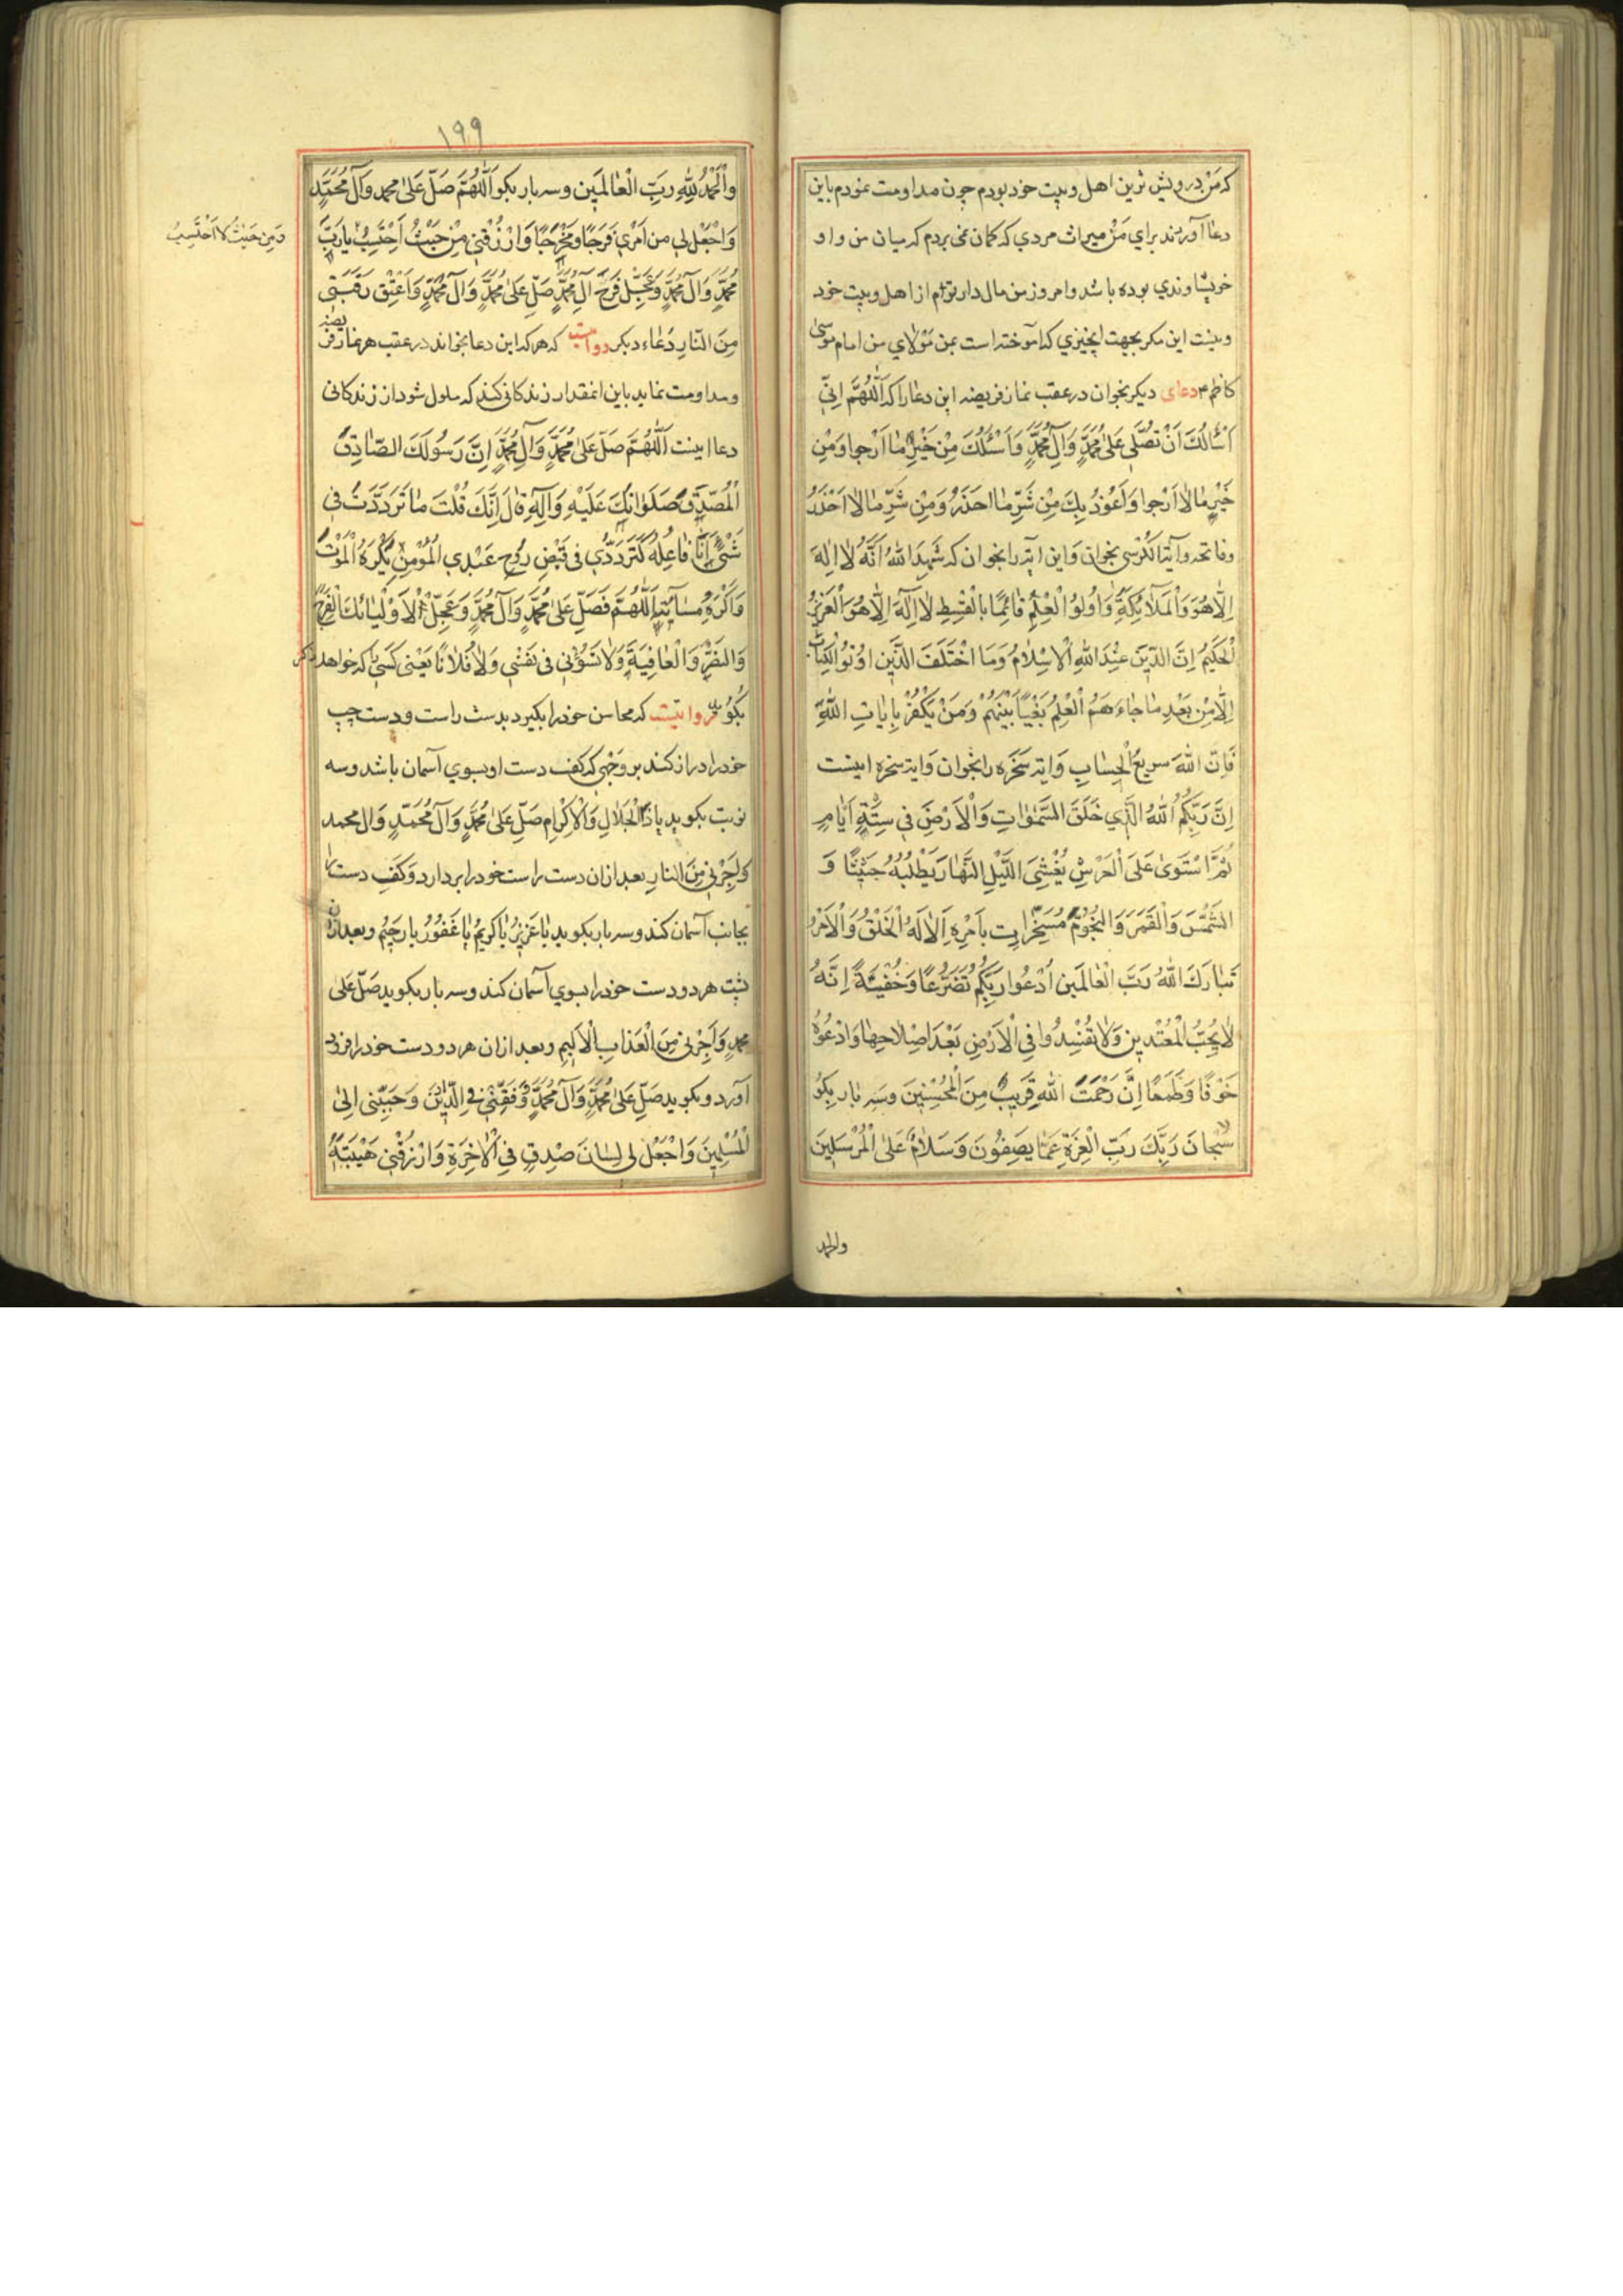 که من درویش ترین اهل وبیت خود بودم چون مداومت نمودم باین
دعا آوردند برای من میراث مردی که کمان نمی بردم که میان من و او
خویشاوندی بوده باشد وامروز من مال دار توام از اهل وبیت خود
ونیست این مکر بجهت انچیزی که آموخته است بمن مَوْلای من امام موسیٰ
کاظم ع دعای دیکر بخوان در عقب نماز فریضه این دعا را که اَللّٰهُمَّ اِنّی
اَسْأَلُكَ اَنْ تُصَلّی عَلیٰ مُحَمَّدٍ وَآلِ مُحَمَّدٍ وَاَسْئَلُكَ مِنْ خَیْرِ مٰا اَرْجوا وَمِنْ
خَیْرِ مٰا لٰا اَرْجوا وَاَعُوذُ بِكَ مِنْ شَرِّ مٰا احذَرُ وَمِنْ شَرِّ مٰا لٰا اَحْذَرُ
وفاتحه وآیة الکرسی بخوان وَاین آیه را بخوان که شَهِدَ اللّٰهُ اَنَّهُ لٰا اِلٰهَ
اِلّٰا هُوَ وَالْمَلٰائِكَةُ وَاُولوُا الْعِلْمِ قٰائِمًا بِالْقِسْطِ لٰا اِلٰهَ اِلّٰا هُوَ الْعَزیزُ
الْحَکیُمُ اِنَّ الدّینَ عِنْدَ اللّٰهِ الْاِسْلٰامُ وَمَا اخْتَلَفَ الَّذینَ اوُتوُا الْكِتٰابَ
اِلّٰا مِنْ بَعْدِ مٰا جٰاءَ هُمُ الْعِلْمُ بَغْیاً بَیْنَهُمْ وَمَنْ یَكْفُرْ بِاٰیٰاتِ اللّٰهِ
فَاِنَّ اللّٰهَ سریعُ الْحِسٰابِ وَایه سَخَرَه را بخوان وَایه سخره اینست
اِنَّ رَبَّكُمُ اللّٰهُ الَّذی خَلَقَ السَّمٰوٰاتِ وَالْاَرْضَ فی سِتَّةِ اَیّٰامٍ
ثُمَّ اسْتَوٰی عَلَی الْعَرْشِ یُغْشِیَ اللَّیْلِ النَّهٰارَ یَطْلُبُهُ حَثیثًا وَ
الشَّمْسَ وَالْقَمَرَ وَالنُّجُومَ مُسَخَّرٰاتٍ بِاَمْرِهِ اَلٰا لَهُ الْخَلْقُ وَالْاَمْرُ
تَبٰارَكَ اللّٰهُ رَبُّ الْعٰالَمین اُدْعُوا رَبَّكُمْ تَضَرُّعًا وَخُفْیَةً اِنَّهُ
لٰا یُحِبُّ الْمُعْتَدین وَلٰا تُفْسِدُوا فِی الْاَرْضِ بَعْدَ اِصْلٰاحِهٰا وَادْعُوهُ
خَوْفًا وَطَمَعًا اِنَّ رَحْمَتَ اللّٰهِ قَریبٌ مِنَ الْمُحْسِنینَ وسَه بار بکو
سُبْحانَ رَبِّكَ رَبِّ الْعِزَّةِ عَمّٰا یَصِفُونَ وَسَلٰامٌ عَلَی الْمُرْسَلینَ
والحمد
١٩٩
وَالْحَمْدُ لِلّٰهِ رَبِّ الْعٰالَمین وسه بار بکو اَللّٰهُمَّ صَلِّ عَلیٰ محمد وَآلِ مُحَمَّدٍ
وَاجْعَلْ لی من اَمْری فَرَجًا ومَخْرَجًا وَارْزُقْنی مِنْ حَیْثُ اَحْتَسِبُ یا رَبَّ
وَمِنْ حَیْثُ لا اَحْتَسِبُ
مُحَمَّدٍ وَآلِ مُحَمَّدٍ وَعَجِّلْ فَرَجَ آلِ مُحَمَّدٍ صَلِّ عَلیٰ مُحَمَّدٍ وَآلِ مُحَمَّدٍ وَاَعْتِقْ رَقَبَتی
مِنَ النّٰارِ دُعٰاء دیکر روایتست که هر که این دعا بخواند در عقب هر نماز فریضه
ومداومت نماید باین انمقدار زندکانی کند که ملول شود از زندکانی
دعا اینست اَللّٰهُمَّ صَلِّ عَلیٰ مُحَمَّدٍ وَآلِ مُحَمَّدٍ اِنَّ رَسُولَكَ الصّٰادِقَ
الْمُصَدَّقَ صَلَوٰاتُكَ عَلَیْهِ وَآلِهِ قٰالَ اِنَّكَ قُلْتَ مٰا تَرَدَّدْتُ فی
شَیْءٍ اَنَا فٰاعِلُهُ كَتَرَدُّدی فی قَبْضِ رُوحِ عَبْدِی الْمُؤْمِنِ یَكْرَهُ الْمَوْتَ
وَاَكْرَهُ مَسٰائَتَهُ اَللّٰهُمَّ فَصَلِّ عَلیٰ مُحَمَّدٍ وَآلِ مُحَمَّدٍ وَعَجِّلْ لِاَوْلِیٰائِكَ الْفَرَجَ
وَالنَّصْرَ وَالْعٰافِیَةَ وَلٰا تَسُؤْنی فی نَفْسی وَلٰا فُلٰانًا یَعْنی كَسی که خواهد ذکر
روایتست که محاسن خود را بکیرد بدست راست ودست چپ
خود را دراز کند بر وَجْهی که کف دست او بسوی آسمان باشد وسه
نوبت بکوید یٰا ذَا الْجَلٰالِ وَالْاِكْرٰامِ صَلِّ عَلیٰ مُحَمَّدٍ وَآلِ مُحَمَّدٍ وَآل محمد
وَاَجِرْنی مِنَ النّٰارِ بعد ازان دست راست خود را بردارد وَکَفِ دست را
بجانب آسمان کند وسه بار بکوید یٰا عَزیزُ یٰا کَریمُ یٰا غَفُورُ یٰا رَحیمُ وبعد ازان
پشت هر دو دست خود را بسوی آسمان کند وسه بار بکوید صَلِّ عَلیٰ
محمدٍ وَاَجِرْنی مِنَ الْعَذٰابِ الْاَلیمِ وبعد ازان هر دو دست خود را فرود
آورد وبکوید صَلِّ عَلیٰ مُحَمَّدٍ وَآلِ مُحَمَّدٍ وَفَقِّهْنی فی الدّینِ وَحَبِّبْنی اِلَی
الْمُسْلِمینَ وَاجْعَلْ لی لِسٰانَ صْدِقٍ فِی الْآخِرَةِ وَارْزُقْنی هَیْبَةَ